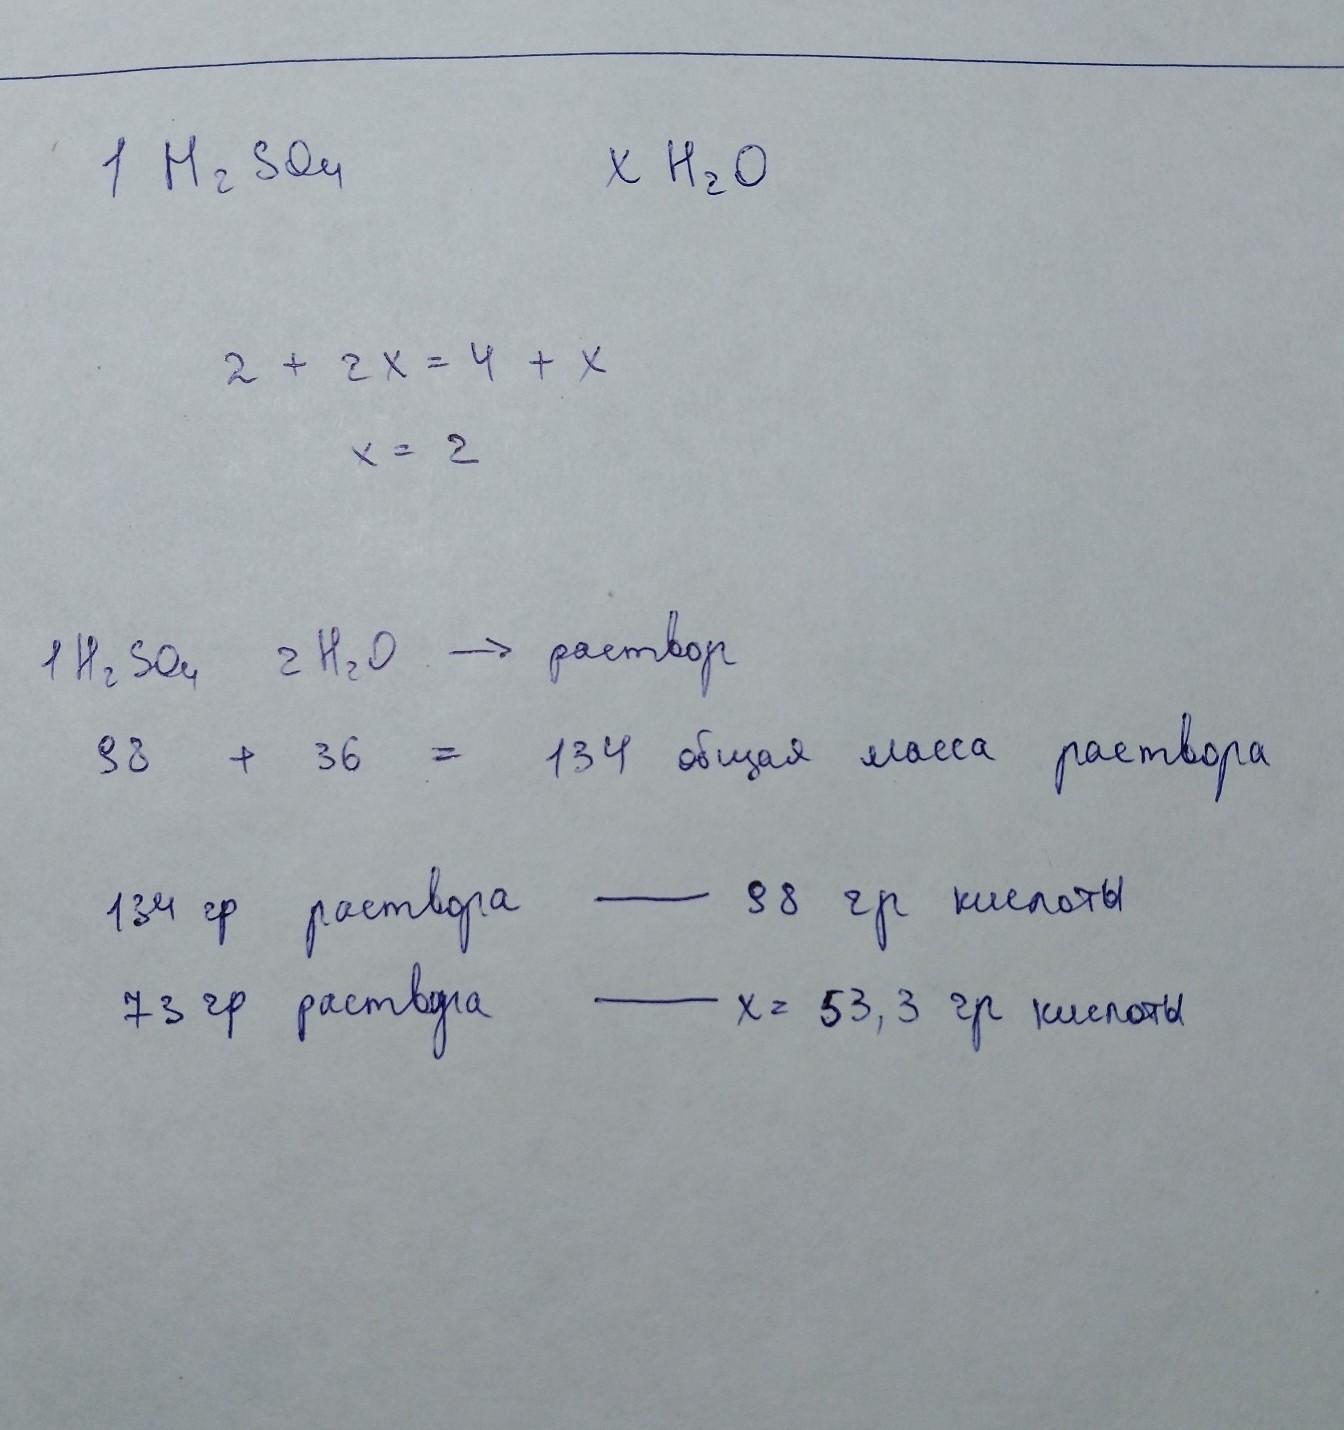 1 H₂SO₄ x H₂O
2 + 2x = 4 + x
x = 2
1H₂SO₄ 2H₂O → раствор
98 + 36 = 134 общая масса раствора
134 гр раствора — 98 гр кислоты
73 гр раствора — x = 53,3 гр кислоты